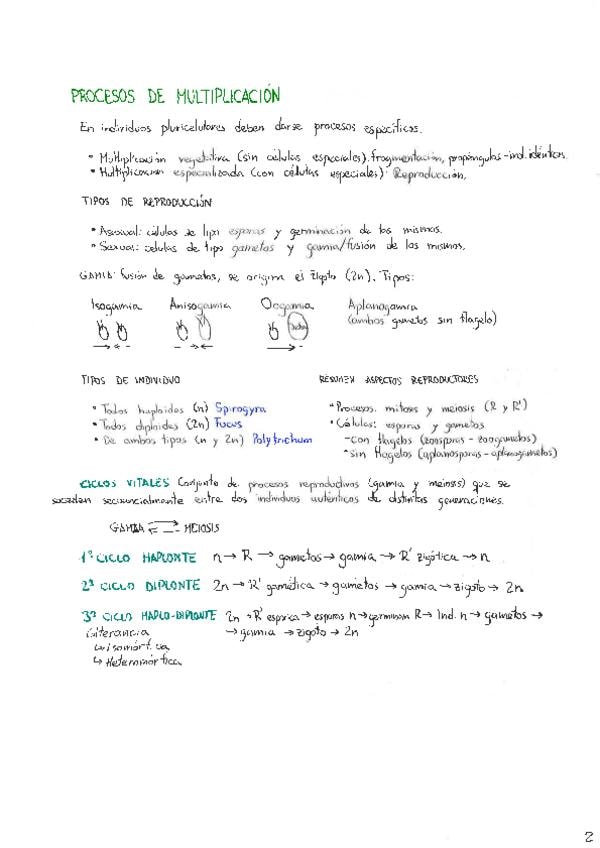 PROCESOS DE MULTIPLICACIÓN
En individuos pluricelulares deben darse procesos específicos.
• Multiplicación vegetativa (sin células especiales): fragmentación, propángulos - ind. idénticos.
• Multiplicación especializada (con células especiales): Reproducción.
TIPOS DE REPRODUCCIÓN
• Asexual: células de tipo esporas y germinación de las mismas.
• Sexual: células de tipo gametos y gamia/fusión de los mismos.
GAMIA: fusión de gametos, se origina el zigoto (2n). Tipos:
Isogamia Anisogamia Oogamia Aplanogamia
(ambos gametos sin flagelo)
TIPOS DE INDIVIDUO
• Todos haploides (n) Spirogyra
• Todos diploides (2n) Fucus
• De ambos tipos (n y 2n) Polytrichum
RESUMEN ASPECTOS REPRODUCTORES
• Procesos: mitosis y meiosis (R y R')
• Células: esporas y gametos
- con flagelos (zoosporas - zoogametos)
- sin flagelos (aplanosporas - aplanogametos)
CICLOS VITALES Conjunto de procesos reproductivos (gamia y meiosis) que se
suceden secuencialmente entre dos individuos auténticos de distintas generaciones.
GAMIA ⇄ MEIOSIS
1º CICLO HAPLONTE n → R → gametos → gamia → R' zigótica → n
2º CICLO DIPLONTE 2n → R' gamética → gametos → gamia → zigoto → 2n
3º CICLO HAPLO-DIPLONTE 2n → R' espórica → esporas n → germinan R → Ind. n → gametos →
→ gamia → zigoto → 2n
↳ Isomórfica
↳ Heteromórfica
2